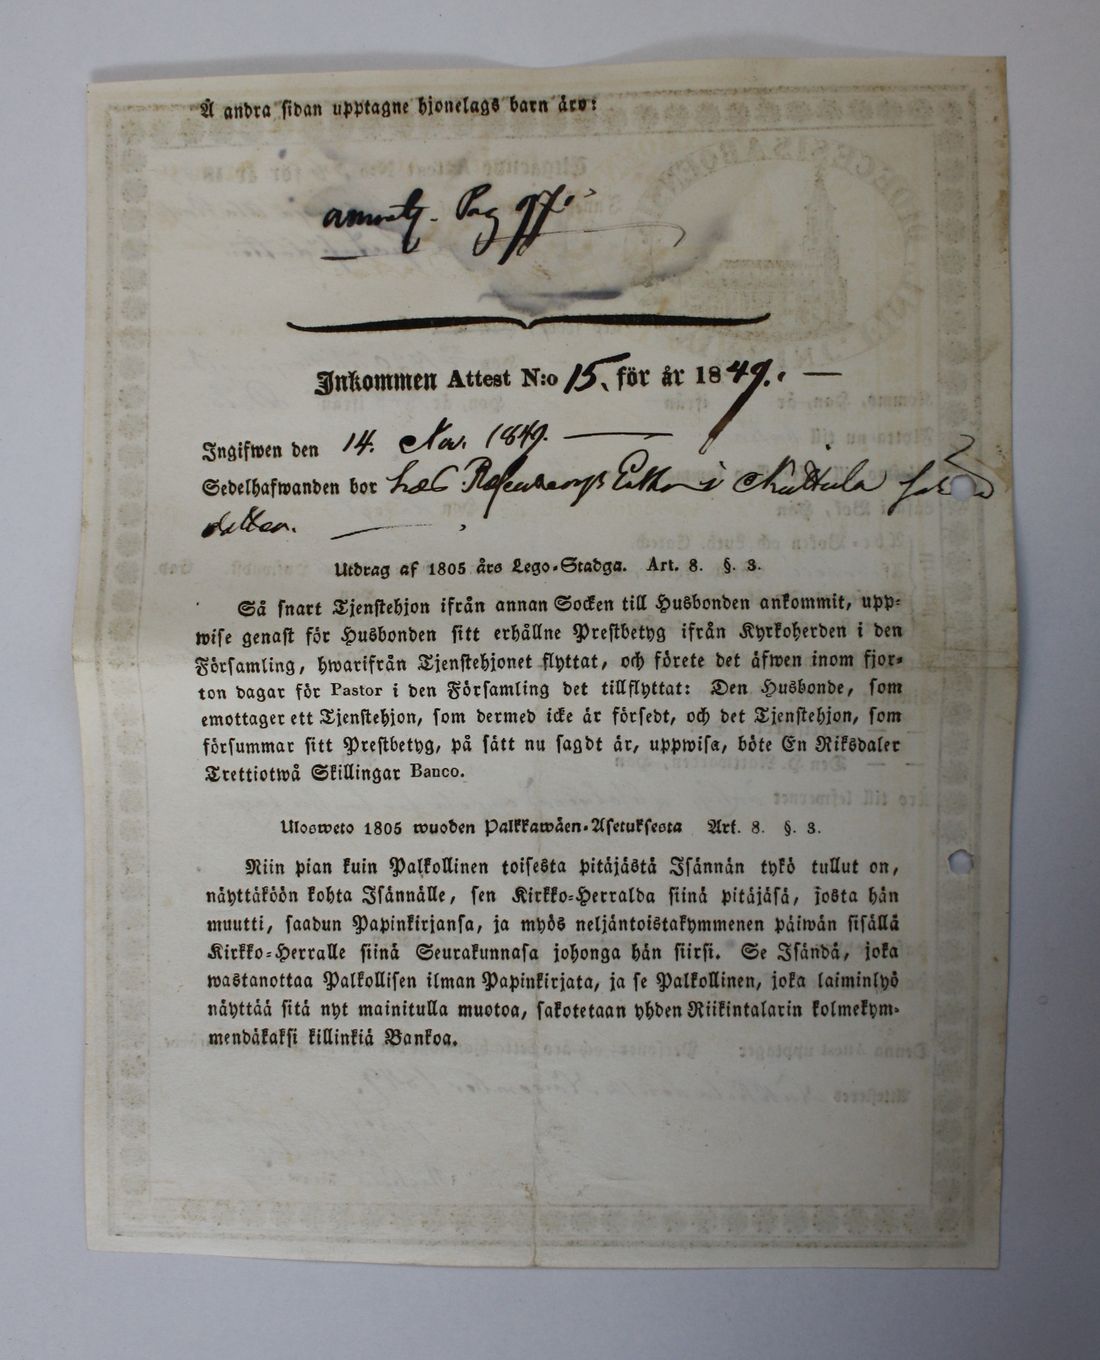 Å andra sidan upptagne hjonelags barn äro:
Pag 97.
Inkommen Attest N:o 15. för år 1849. —
Ingifwen den 14. Nov. 1849. —
Sedelhafwanden bor hos i
Utdrag af 1805 års Lego-Stadga. Art. 8. §. 3.
Så snart Tjenstehjon ifrån annan Socken till Husbonden ankommit, upp-
wise genast för Husbonden sitt erhållne Prestbetyg ifrån Kyrkoherden i den
Församling, hwarifrån Tjenstehjonet flyttat, och förete det äfwen inom fjor-
ton dagar för Pastor i den Församling det tillflyttat: Den Husbonde, som
emottager ett Tjenstehjon, som dermed icke är försedt, och det Tjenstehjon, som
försummar sitt Prestbetyg, på sätt nu sagdt är, uppwisa, böte En Riksdaler
Trettiotwå Skillingar Banco.
Ulosweto 1805 wuoden Palkkawäen-Asetuksesta Art. 8. §. 3.
Niin pian kuin Palkollinen toisesta pitäjästä Isännän tykö tullut on,
näyttäköön kohta Isännälle, sen Kirkko-Herralda siinä pitäjäsä, josta hän
muutti, saadun Papinkirjansa, ja myös neljäntoistakymmenen päiwän sisällä
Kirkko-Herralle siinä Seurakunnasa johonga hän siirsi. Se Isändä, joka
wastanottaa Palkollisen ilman Papinkirjata, ja se Palkollinen, joka laiminlyö
näyttää sitä nyt mainitulla muotoa, sakotetaan yhden Riikintalarin kolmekym-
mendäkaksi killinkiä Bankoa.